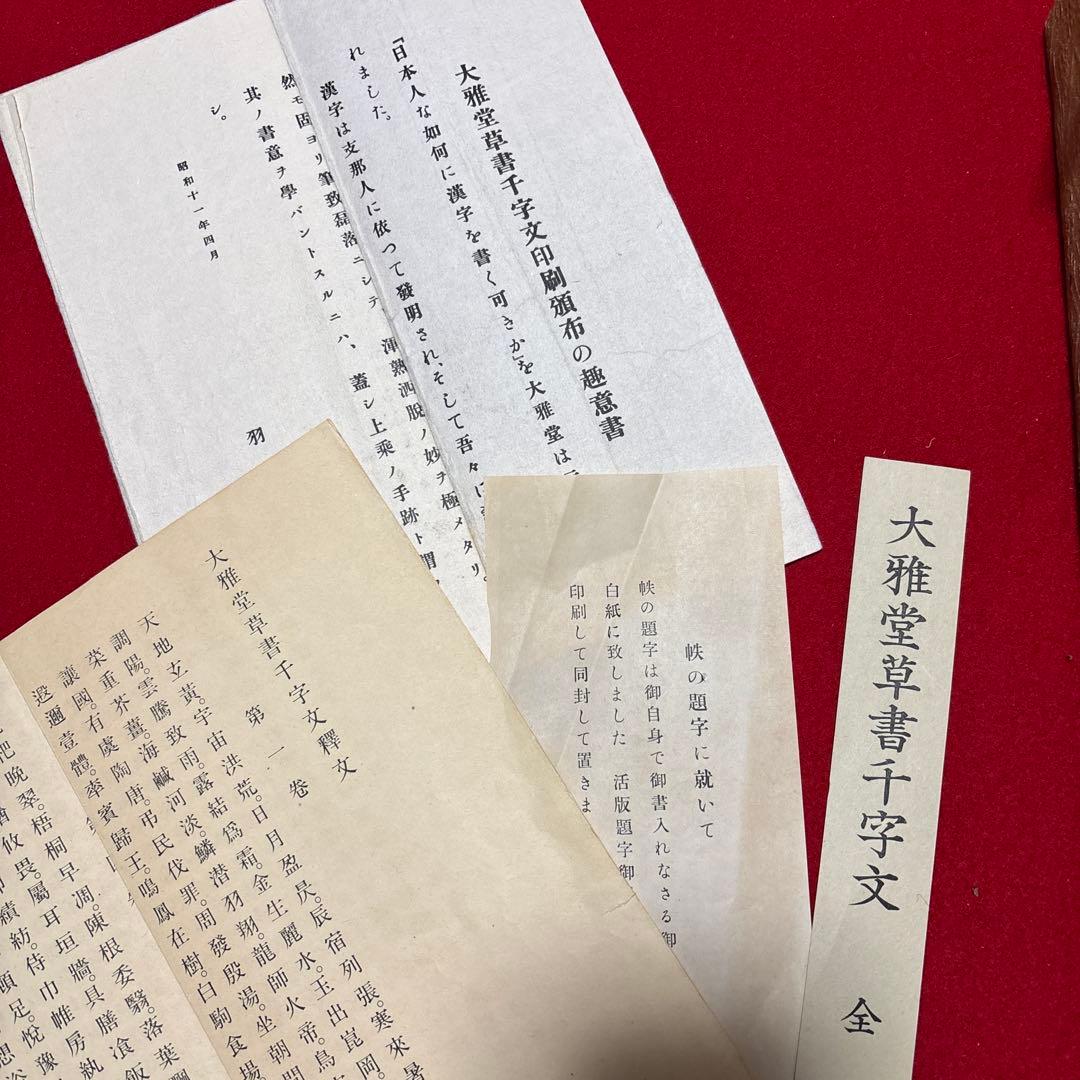 大雅堂草書千字文印刷頒布の趣意書
『日本人な如何に漢字を書く可きか』を大雅堂は
れました。
漢字は支那人に依つて發明され、そして吾々に
然モ固ヨリ筆致磊落ニシテ、渾熟洒脱ノ妙ヲ極メタリ。
其ノ書意ヲ學バントスルニハ、蓋シ上乘ノ手跡ト謂
シ。
昭和十一年四月
羽
帙の題字に就いて
帙の題字は御自身で御書入れなさる御
白紙に致しました 活版題字御
印刷して同封して置きま
大雅堂草書千字文 全
大雅堂草書千字文釋文
第一卷
天地玄黃。宇宙洪荒。日月盈昃。辰宿列張。寒來暑
調陽。雲騰致雨。露結爲霜。金生麗水。玉出崑岡。
菜重芥薑。海鹹河淡。鱗潜羽翔。龍師火帝。鳥
讓國。有虞陶唐。弔民伐罪。周發殷湯。坐朝問
遐邇壹體。率賓歸王。鳴鳳在樹。白駒食場。
杷晚翠。梧桐早凋。陳根委翳。落葉
攸畏。屬耳垣牆。具膳飡飯
績紡。侍巾帷房。紈
頓足。悅豫